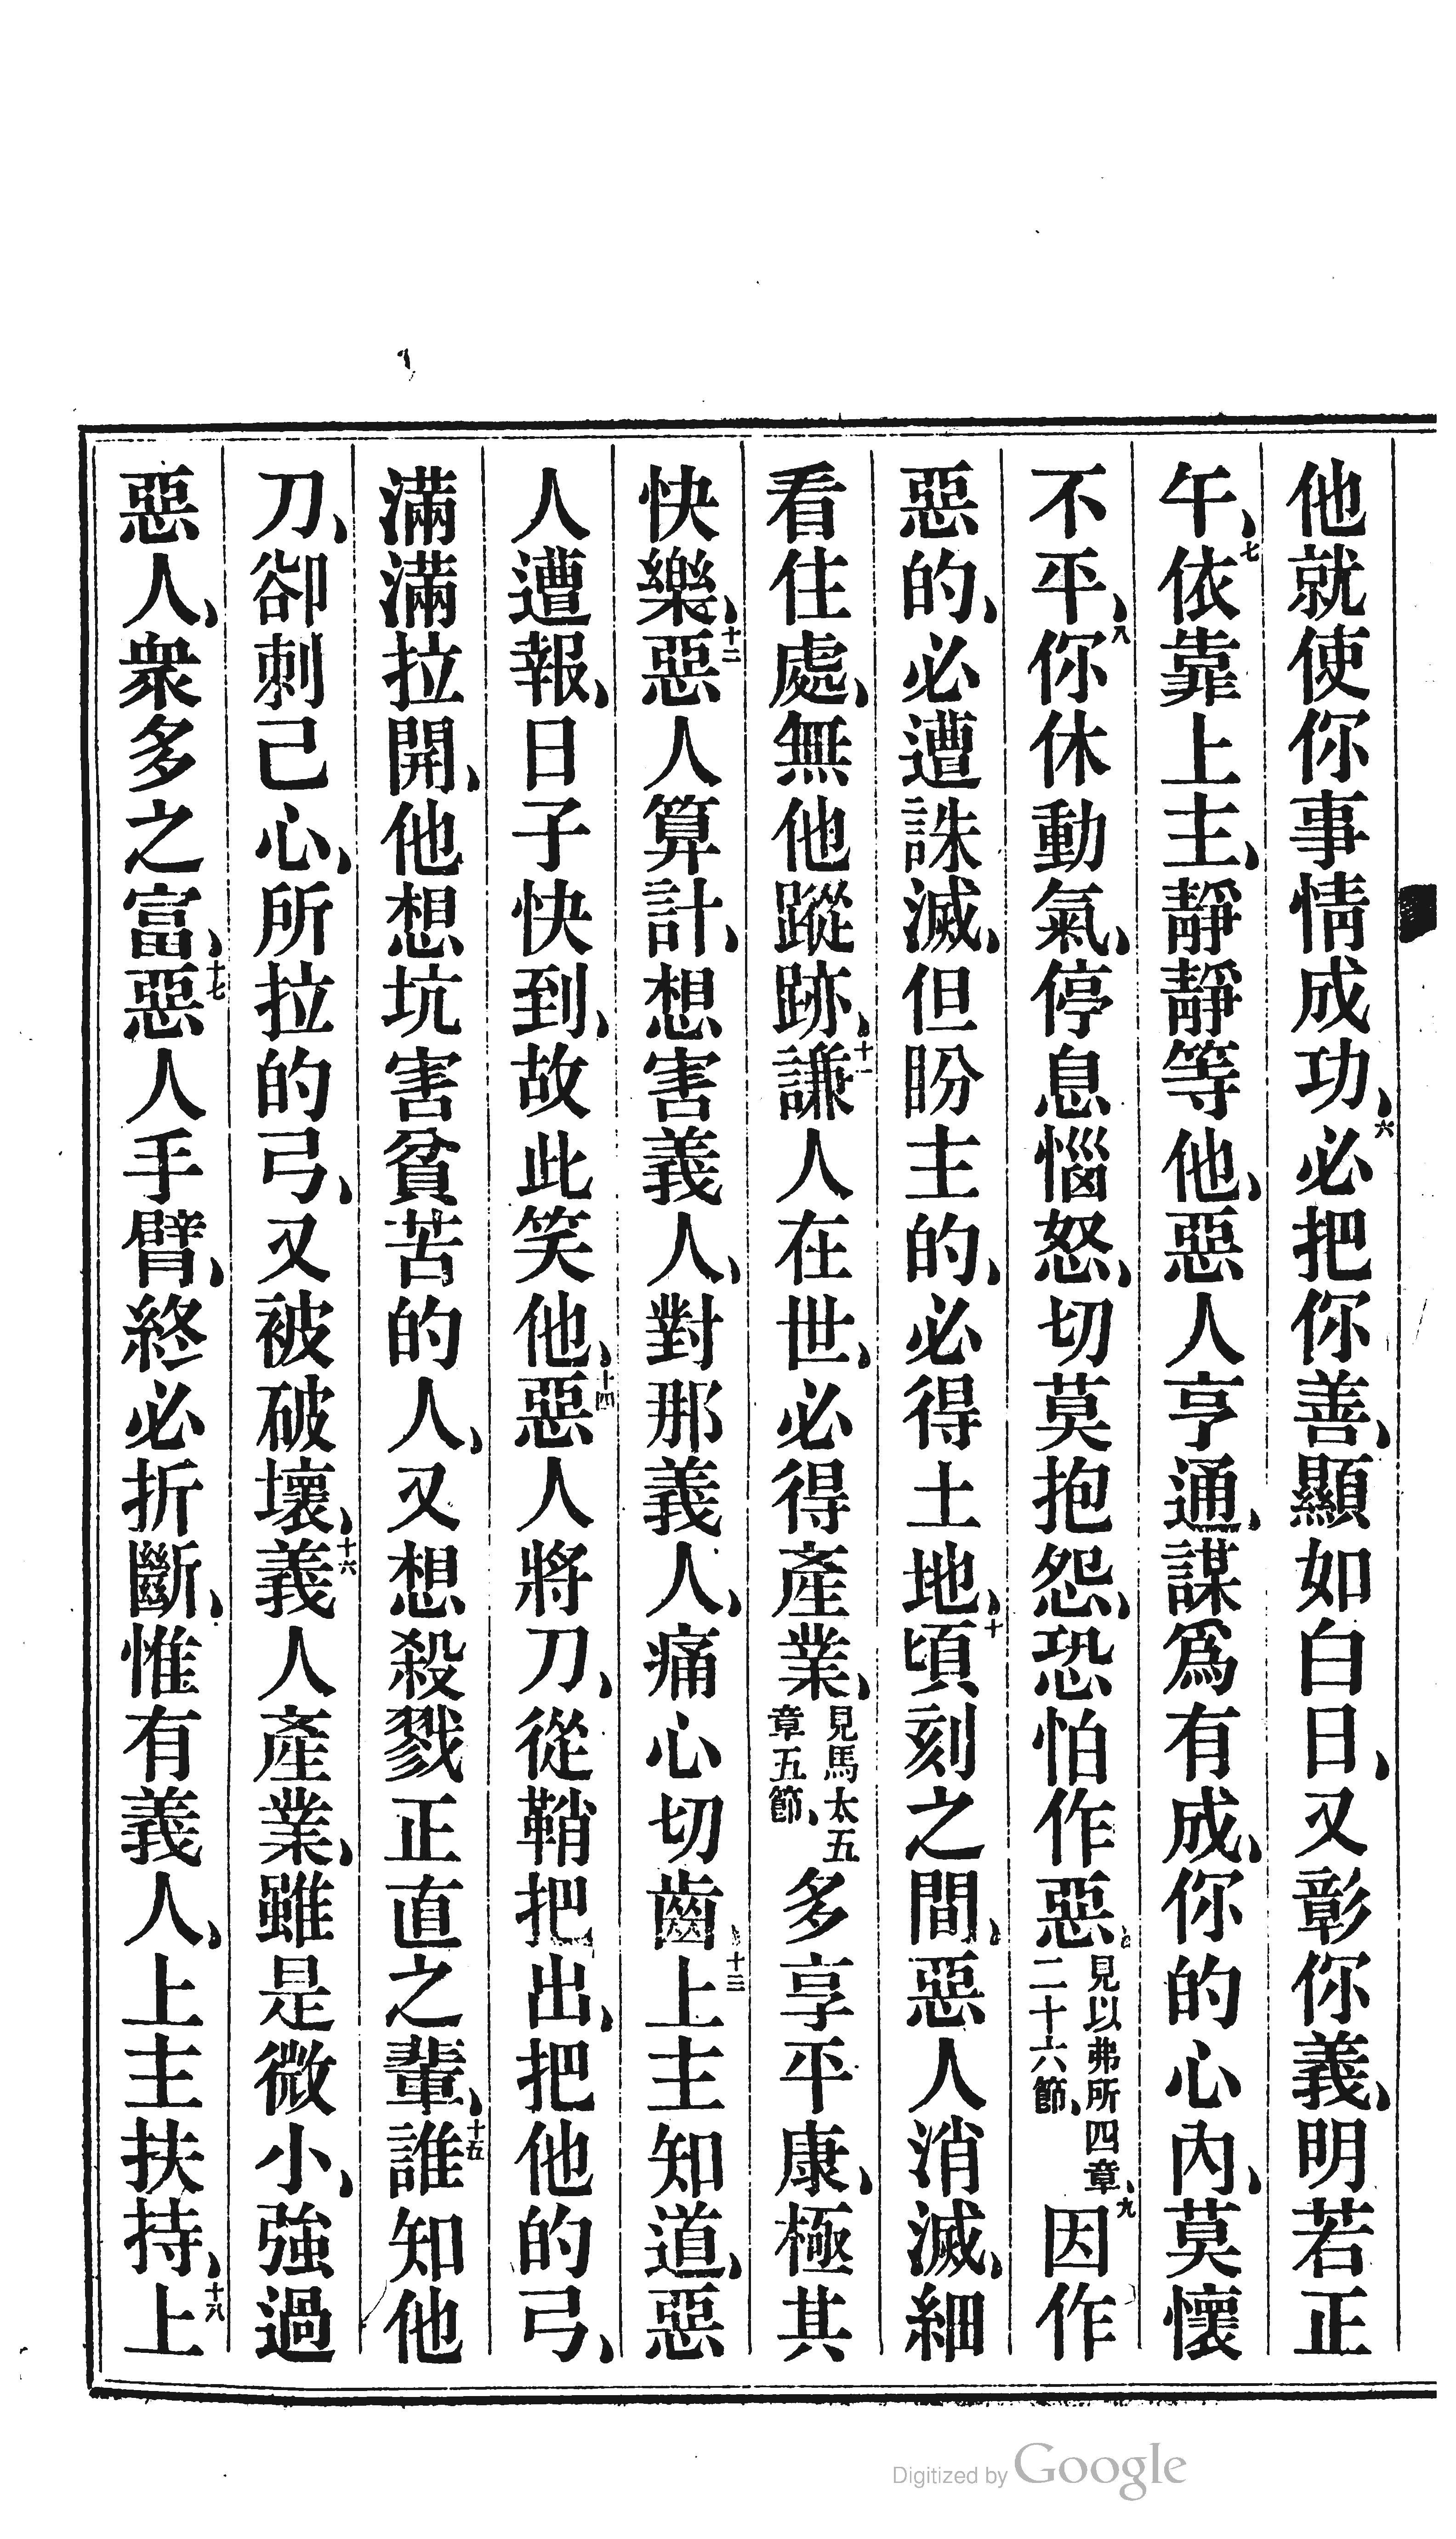 他就使你事情成功、六必把你善、顯如白日、又彰你義、明若正
午、七依靠上主、靜靜等他、惡人亨通、謀爲有成、你的心內、莫懷
不平、八你休動氣、停息惱怒、切莫抱怨、恐怕作惡、見以弗所四章、二十六節、九因作
惡的、必遭誅滅、但盼主的、必得土地、十頃刻之間、惡人消滅、細
看住處、無他蹤跡、十一謙人在世、必得產業、見馬太五章五節、多享平康、極其
快樂、十二惡人算計、想害義人、對那義人、痛心切齒、十三上主知道、惡
人遭報、日子快到、故此笑他、十四惡人將刀、從鞘把出、把他的弓、
滿滿拉開、他想坑害貧苦的人、又想殺戮正直之輩、十五誰知他
刀、卻刺己心、所拉的弓、又被破壞、十六義人產業、雖是微小、強過
惡人、衆多之富、十七惡人手臂、終必折斷、惟有義人、上主扶持、十八上
Digitized by Google